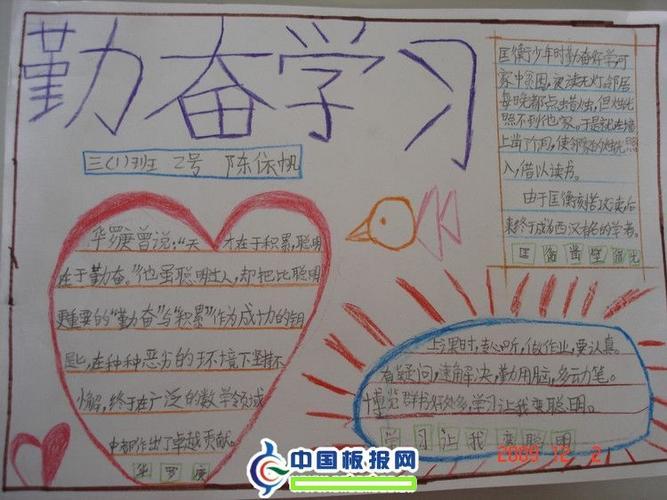 勤奋学习
三(1)班 2号 陈依帆
匡衡少年时勤奋好学,可
家中贫困,夜读无灯,邻居
每晚都点蜡烛,但烛光
照不到他家,于是就在墙
上凿了个洞,使邻家的烛光照
入,借以读书。
由于匡衡刻苦读书,后
来终于成为西汉有名的学者。
匡衡凿壁偷光
华罗庚曾说:“天才在于积累,聪明
在于勤奋。”他虽聪明过人,却把比聪明
更重要的“勤奋”与“积累”作为成功的钥
匙,在种种恶劣的环境下坚持不
懈,终于在广泛的数学领域
中都作出了卓越贡献。
华罗庚
上课时,专心听,做作业,要认真。
有疑问,速解决,勤用脑,多动笔。
博览群书好处多,学习让我变聪明。
学习让我变聪明
中国板报网
2009 12 2